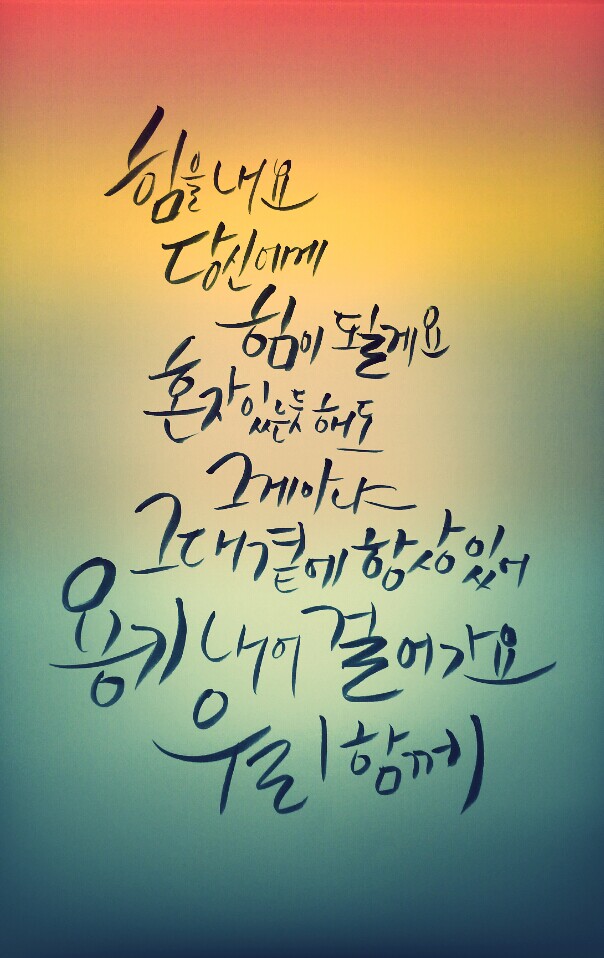 힘을 내요
당신에게
힘이 될게요
혼자 있는듯 해도
그게 아냐
그대 곁에 항상 있어
용기 내어 걸어가요
우리 함께